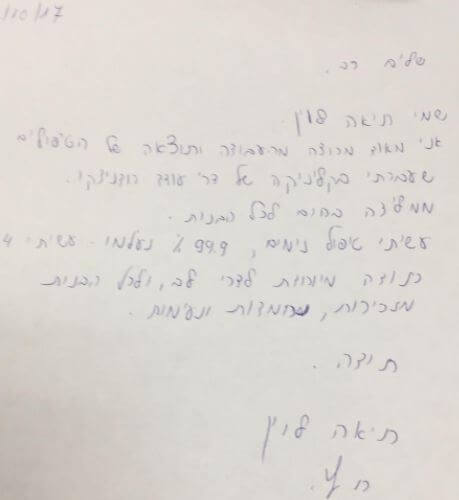 /10/17
שלום רב.
שמי תיאה לוין.
אני מאוד מרוצה מהעבודה ותוצאה של הטיפולים
שעברתי בקליניקה של דר' עודד
ממליצה בחום לכל הבנות.
עשיתי טיפול נימים, 99.9 % נעלמו. עשיתי 4
תודה מיוחדת לדר' לב, ולכל הבנות
מזכירות, נחמדות ונעימות.
תודה.
תיאה לוין